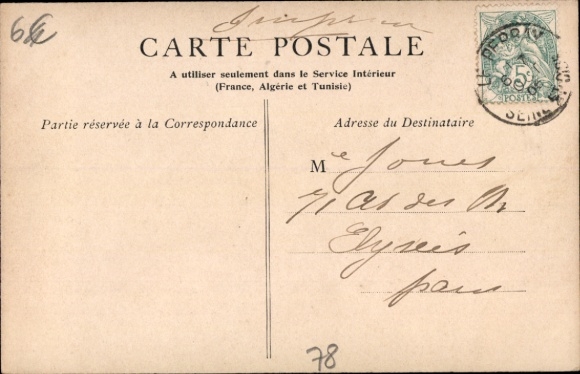 6€
Imprimé
CARTE POSTALE
A utiliser seulement dans le Service Intérieur
(France, Algérie et Tunisie)
5c
POSTES
SEINE
Partie réservée à la Correspondance
Adresse du Destinataire
Me Jones
71 Av des Ch
Elysées
Paris
78